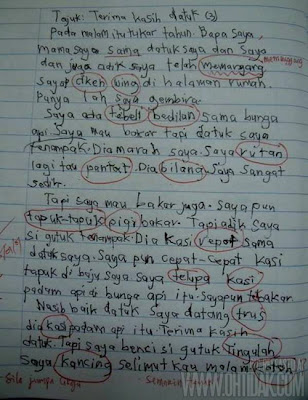 Tajuk: Terima kasih datuk (3)
Pada malam itu tukar tahun. Bapa saya,
mama saya sama datuk saya dan saya
dan juga adik saya telah memargang
memanggang
sayaf dkeh bing di halaman rumah.
Punya lah saya gembira.
Saya ada tebeli bedilan sama bunga
api. Saya mau bakar tapi datuk saya
tenampak. Dia marah saya. Saya rutan
lagi tau pantat. Dia bilang saya sangat
Tapi saya mau bakar juga. Saya pun
tapuk-tapuk pigi bakar. Tapi adik saya
si gutuk tenampak. Dia kasi repot sama
datuk saya. Saya pun cepat-cepat kasi
tapuk di baju saya. Saya telupa kasi
padam api di bunga api itu. Saya pun tebakar.
Nasib baik datuk saya datang trus
dia kasi padam api itu. Terima kasih
datuk. Tapi saya benci si gutuk tingulah
saya kancing selimut kau malam
Sila jumpa cikgu
WWW.OHTIDAK.COM